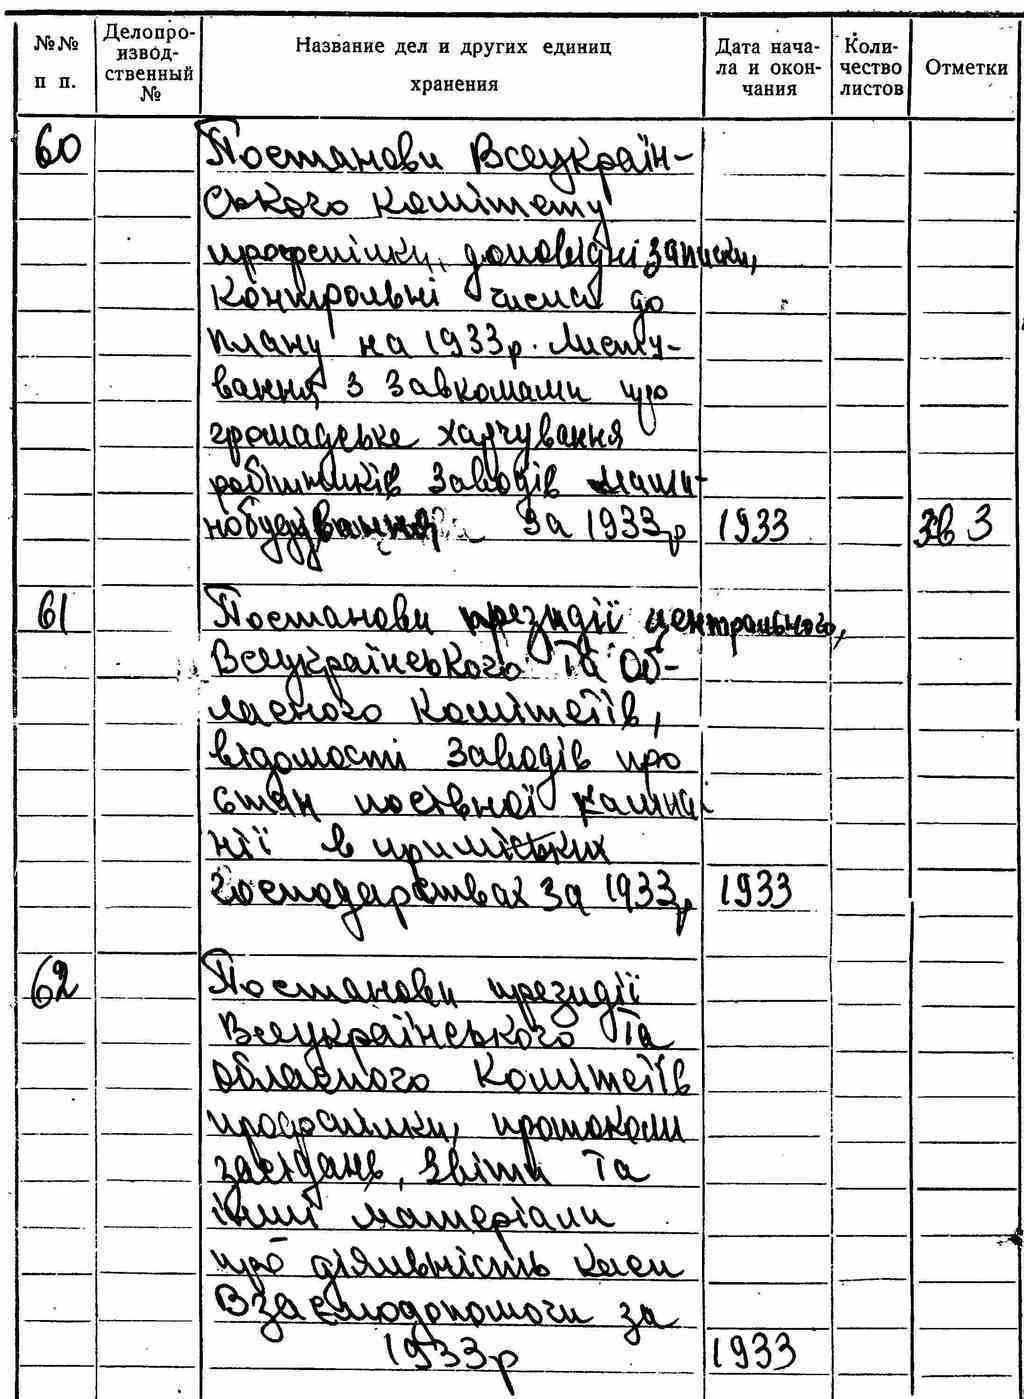 №№ п п.
Делопро-
извод-
ственный
№
Название дел и других единиц
хранения
Дата нача-
ла и окон-
чания
Коли-
чество
листов
Отметки
60 Постанови Всеукраїн-
ського комітету
профспілки, доповідні записки,
контрольні числа до
плану на 1933р. Листу-
вання з завкомами про
громадське харчування
робітників заводів маши-
нобудування за 1933р 1933 Зв 3
61 Постанови президії центрального,
Всеукраїнського та об-
ласного комітетів,
відомості заводів про
стан посівної кампа-
нії в приміських
господарствах за 1933р 1933
62 Постанови президії
Всеукраїнського та
обласного комітетів
профспілки, протоколи
засідань, звіти та
інші матеріали
про діяльність каси
взаємодопомоги за
1933р 1933